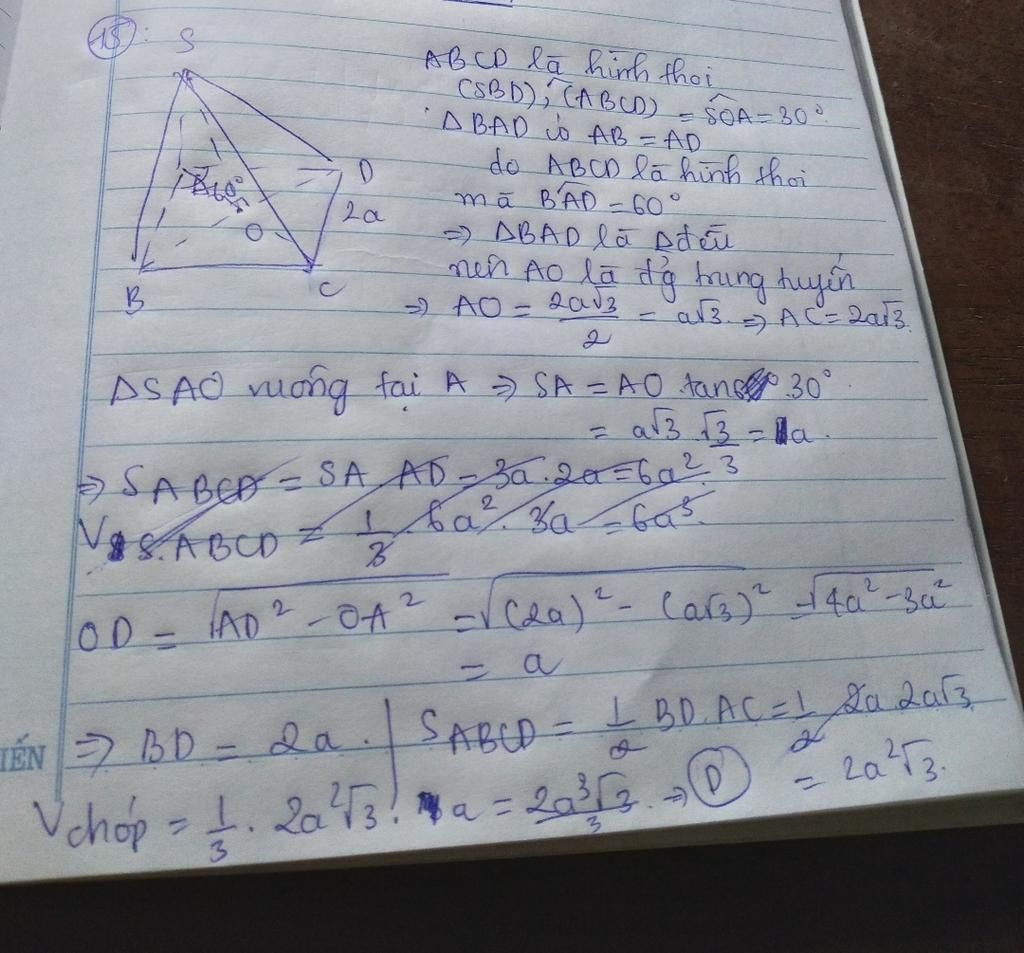 15:
S
D
A 60°
2a
O
B
C
ABCD là hình thoi
(SBD), (ABCD) = SOA = 30°
ΔBAD có AB = AD
do ABCD là hình thoi
mà BAD = 60°
⇒ ΔBAD là Δ đều
nên AO là đg trung tuyến
⇒ AO = 2a√3/2 = a√3 ⇒ AC = 2a√3.
ΔSAO vuông tại A ⇒ SA = AO . tan 30°
= a√3 . √3/3 = a.
⇒ SABCD = SA . AD = 3a . 2a = 6a²
VS.ABCD = 1/3 . 6a² . 3a = 6a³.
OD = √AD² - OA² = √(2a)² - (a√3)² = √4a² - 3a²
= a
⇒ BD = 2a. | SABCD = 1/2 BD . AC = 1/2 2a 2a√3
= 2a²√3.
Vchóp = 1/3 . 2a²√3 . a = 2a³√3/3 ⇒ D
IẾN